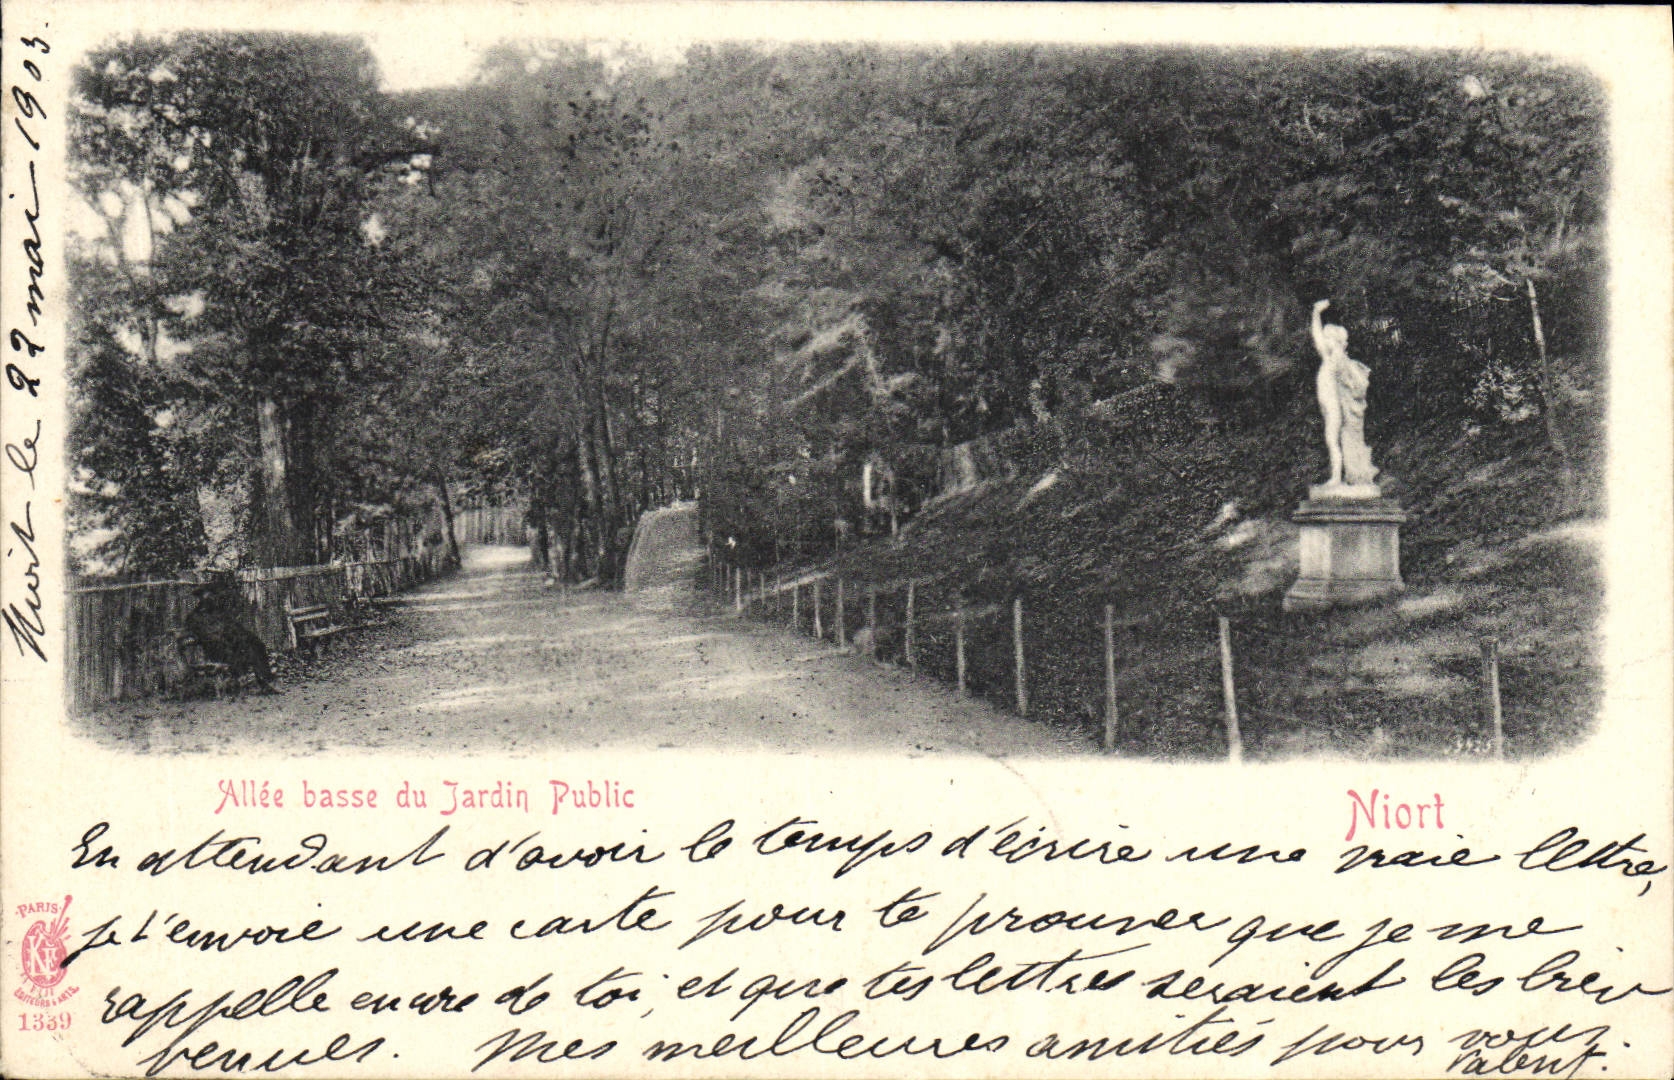 Niort le 22 mai 1903.
Allée basse du Jardin Public
Niort
En attendant d'avoir le temps d'écrire une vraie lettre,
je t'envoie une carte pour te prouver que je me
rappelle encore de toi, et que tes lettres seraient les bien
venues. Mes meilleures amitiés pour vous.
PARIS
ÉDITEURS D'ARTS
1339